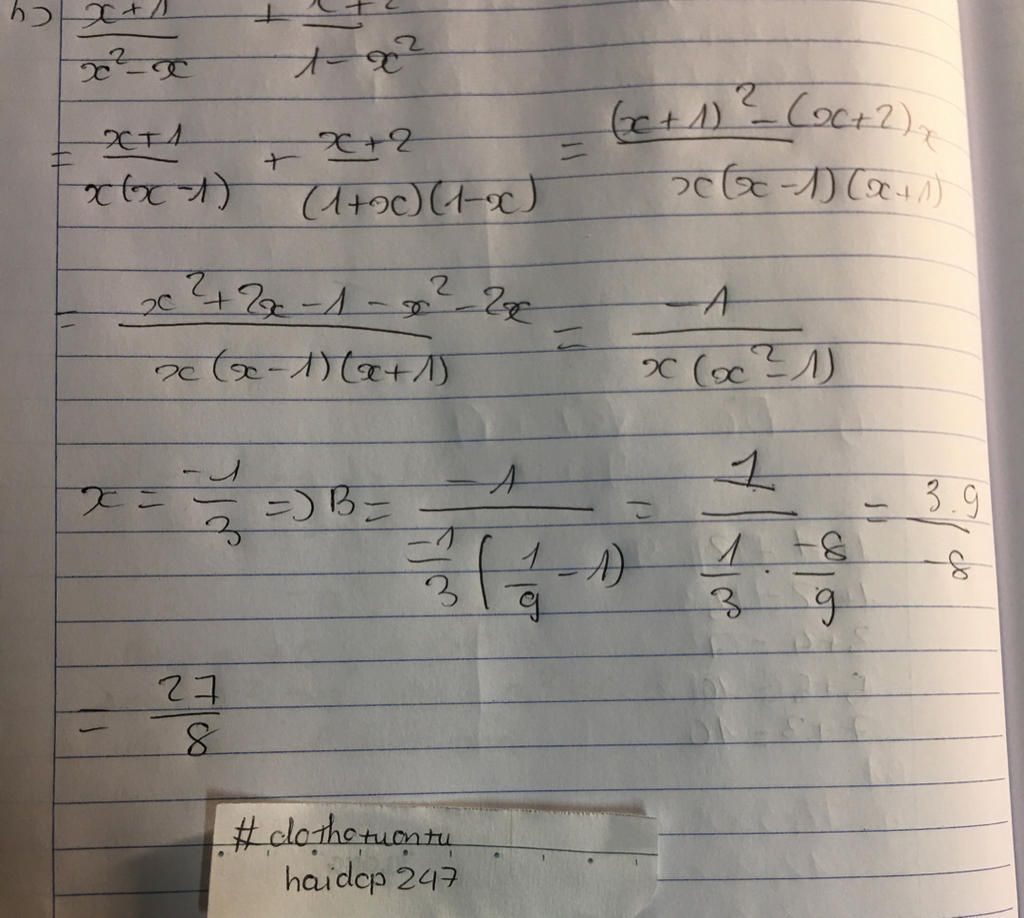 c) (x+1)/(x²-x) + (x+2)/(1-x²)
= (x+1)/(x(x-1)) + (x+2)/((1+x)(1-x)) = ((x+1)² - (x+2)x)/(x(x-1)(x+1))
= (x²+2x-1-x²-2x)/(x(x-1)(x+1)) = (-1)/(x(x²-1))
x = (-1)/3 => B = (-1)/((-1)/3 (1/9 - 1)) = 1/(1/3 . (-8)/9) = (3.9)/(-8)
= 27/8
# dothatuantu
haidcp 247